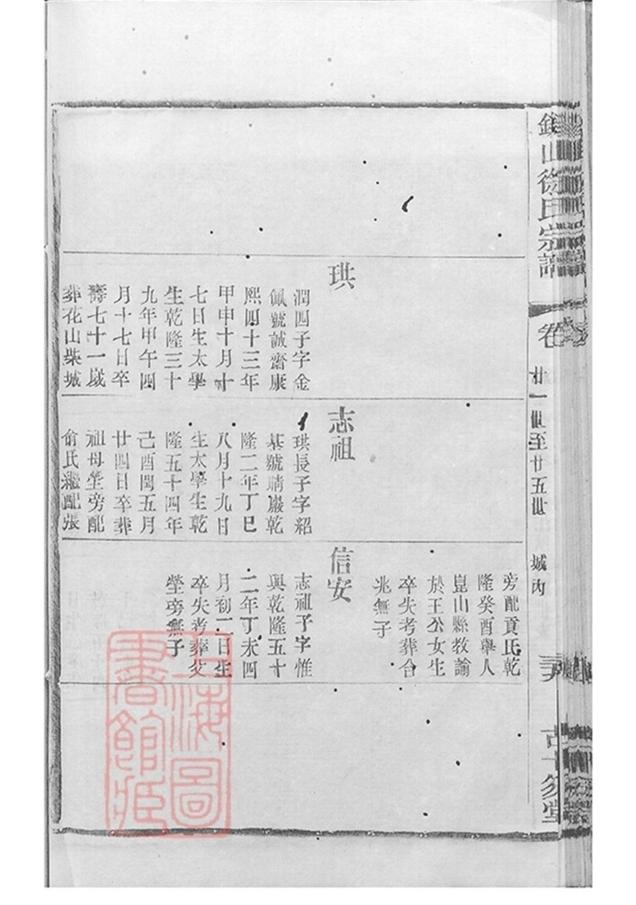 山徐氏宗譜
卷
廿一世至廿五世
城內
珙
潤四子字金
佩號誠齋康
熙四十三年
甲申十月十
七日生太學
生乾隆三十
九年甲午四
月十七日卒
壽七十一歲
葬花山柴城
志祖
珙長子字紹
基號晴巖乾
隆二年丁巳
八月十九日
生太學生乾
隆五十四年
己酉閏五月
廿四日卒葬
祖母塋旁配
俞氏繼配張
旁配貢氏乾
隆癸酉舉人
崑山縣教諭
於王公女生
卒失考葬合
兆無子
信安
志祖子字惟
興乾隆五十
二年丁未四
月初二日生
卒失考葬父
塋旁無子
上海圖
書館藏